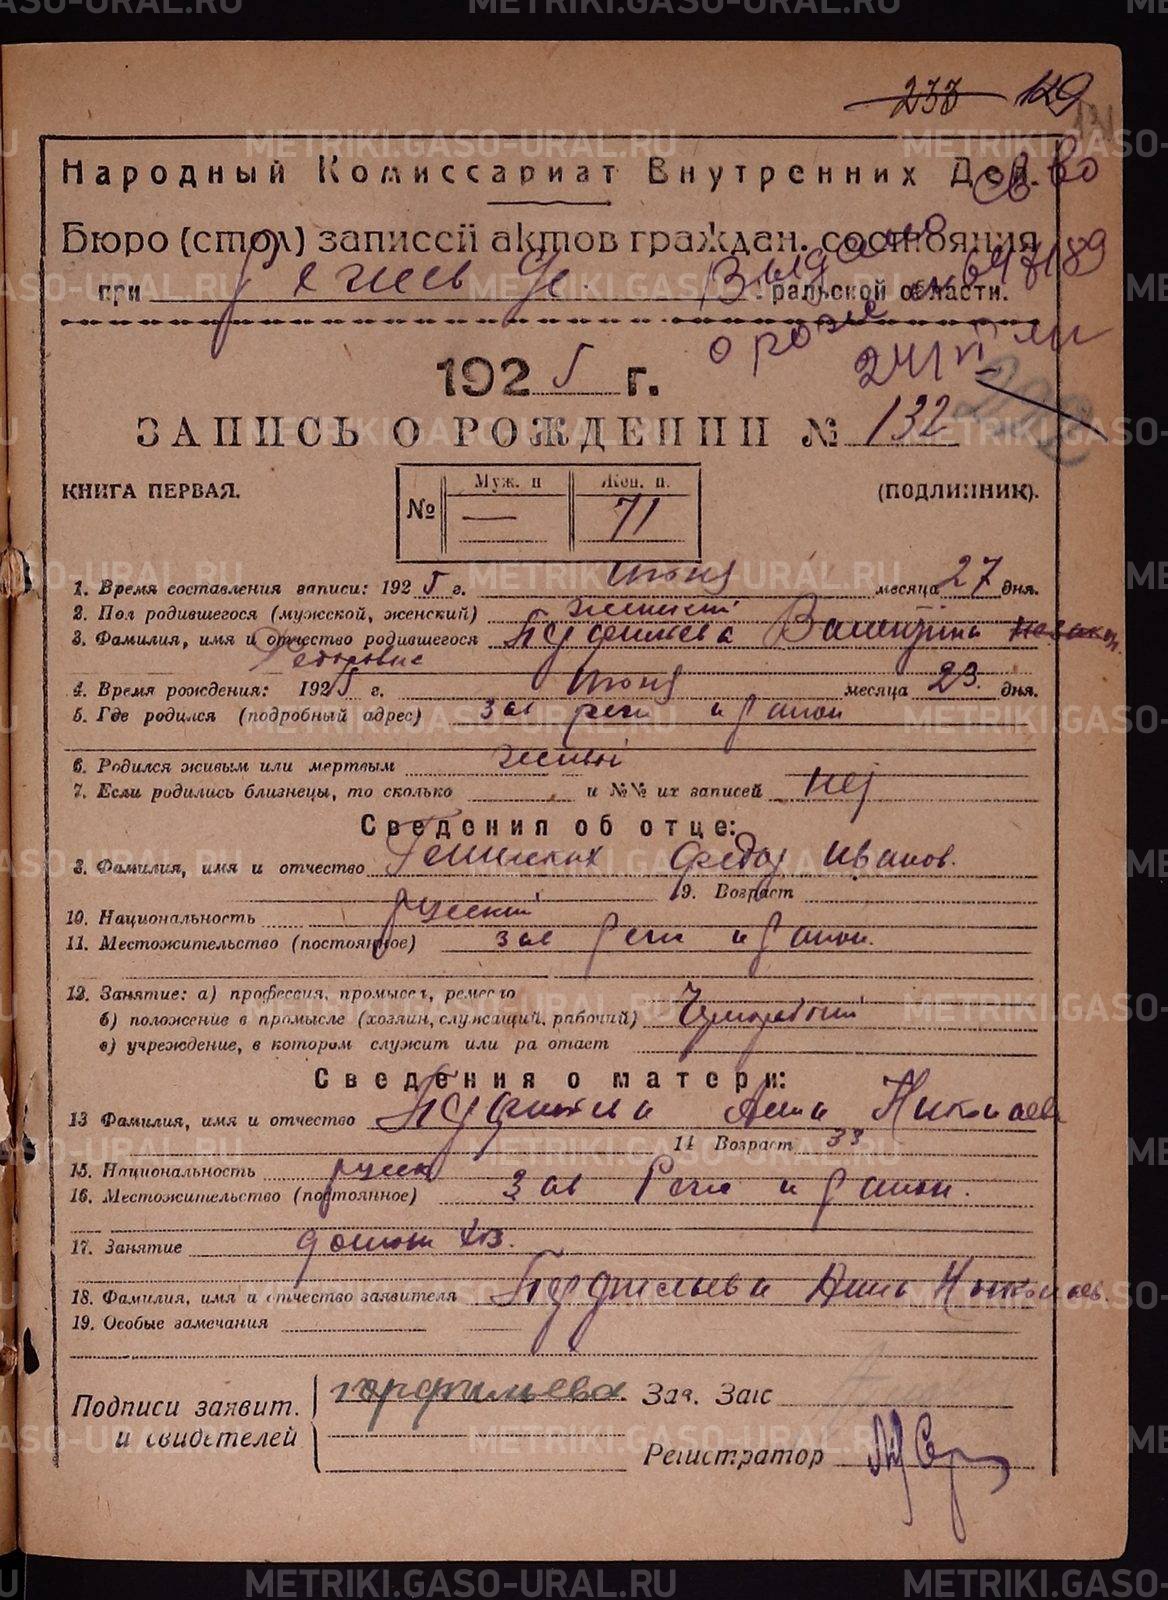 233 129
Народный Комиссариат Внутренних Дел.
Св во
Бюро (стол) записсй актов граждан. состояния
Выдано
при Режев Уральской области.
о рожд
1925 г.
24/VI
ЗАПИСЬ О РОЖДЕНИИ № 132
КНИГА ПЕРВАЯ.
(ПОДЛИННИК).
№ Муж. п — Жен. п. 71
1. Время составления записи: 1925 г. Июня месяца 27 дня.
2. Пол родившегося (мужской, женский) женский
3. Фамилия, имя и отчество родившегося Парфильева Валентина
Федоровна
4. Время рождения: 1925 г. Июня месяца 23 дня.
5. Где родился (подробный адрес) зав Реж и район
6. Родился живым или мертвым живой
7. Если родились близнецы, то сколько и №№ их записей нет
Сведения об отце:
8. Фамилия, имя и отчество Федор Иванов.
9. Возраст
10. Национальность русский
11. Местожительство (постоянное) зав Реж и район.
12. Занятие: а) профессия, промысел, ремесло
б) положение в промысле (хозяин, служащий, рабочий)
в) учреждение, в котором служит или ра отает
Сведения о матери:
13 Фамилия, имя и отчество Парфильева Анна Николаев
14 Возраст 33
15. Национальность русск
16. Местожительство (постоянное) зав Реж и район.
17. Занятие домаш хоз.
18. Фамилия, имя и отчество заявителя Парфильева Анна Николаев.
19. Особые замечания
Подписи заявит. и свидетелей
порфильева
Зав. Загс
Регистратор
METRIKI.GASO-URAL.RU